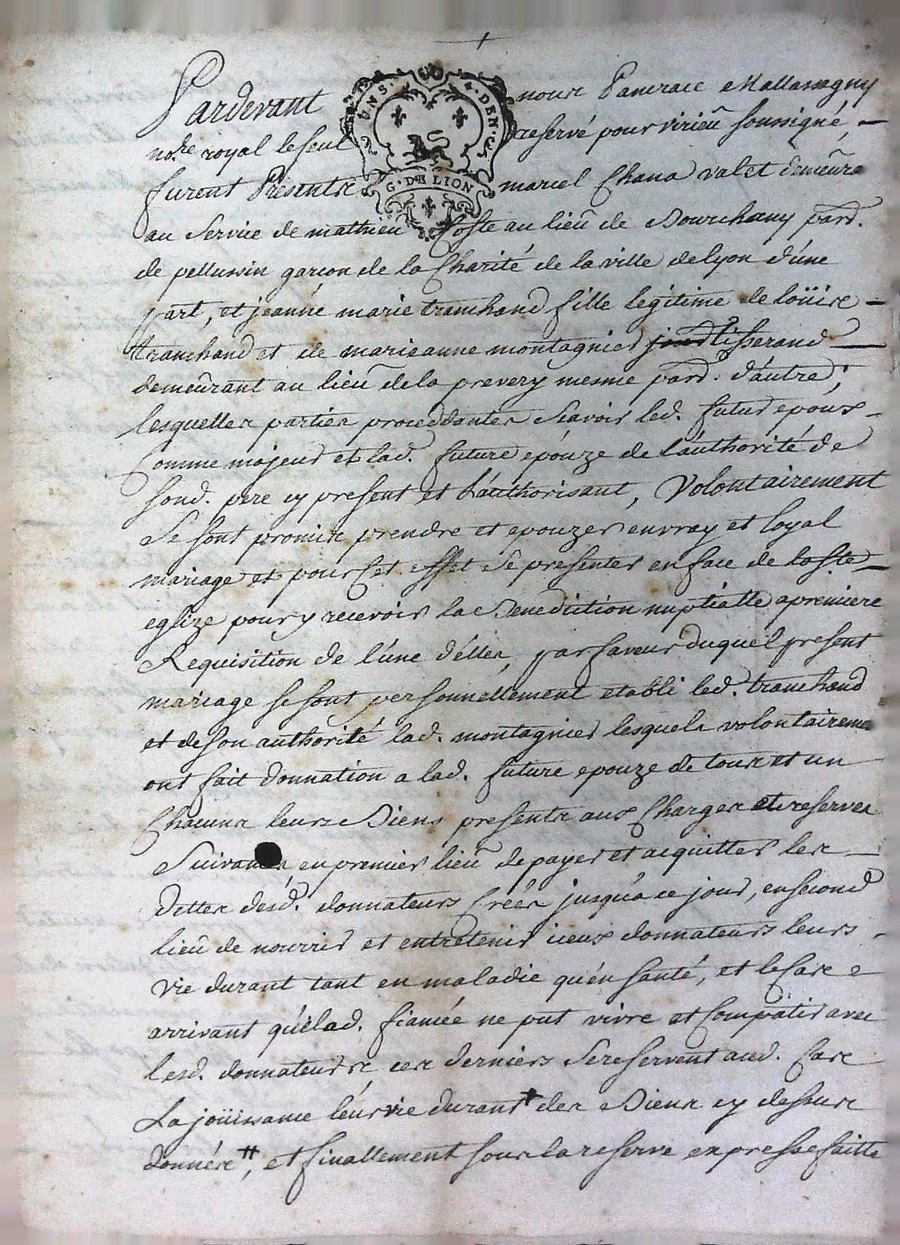 Pardevant nous Pancrace Mallassagny
no.re royal le seul reservé pour virieu soussigné,
furent Presents marcel Chana valet demeure
UN S. 4. DEN.
G. DE LION
au service de mathieu Coste au lieu de Bourchany paro.
de pellussin garcon de la Charité de la ville de lyon d'une
part, et jeanne marie tranchand fille legitime de loüis
tranchand et de marieanne montagnier tisserand
demeurant au lieu de la prevery mesme paro. d'autre;
lesquelles parties proceddantes scavoir led. futur epoux
Comme majeur et lad. future epouze de l'authorité de
sond. pere cy present et l'authorisant, Volontairement
Se sont promis prendre et epouzer en vray et loyal
mariage et pour cet effet se presenter en face de
eglize pour y recevoir la Benediction nuptialle a premiere
Requisition de l'une d'elles, par faveur duquel present
mariage se sont personnellement etabli led. tranchand
et de son authorité lad. montagnier lesquels volontaireme
ont fait donnation a lad. future epouze de tous et un
Chacuns leurs Biens presents aux Charges et reserves
Suivantes en premier lieu de payer et acquitter les
Dettes desd. donnateurs Créés jusqu'a ce jour, en second
lieu de nourrir et entretenir iceux donnateurs leurs
vie durant tant en maladie qu'en santé, et le cas
arrivant qu'elad. fiancée ne put vivre et compatir avec
lesd. donnateurs ces derniers se reservent aud. cas
La joüissance leur vie durant des Biens cy dessus
donnés, et finallement sous la reserve expresse faitte